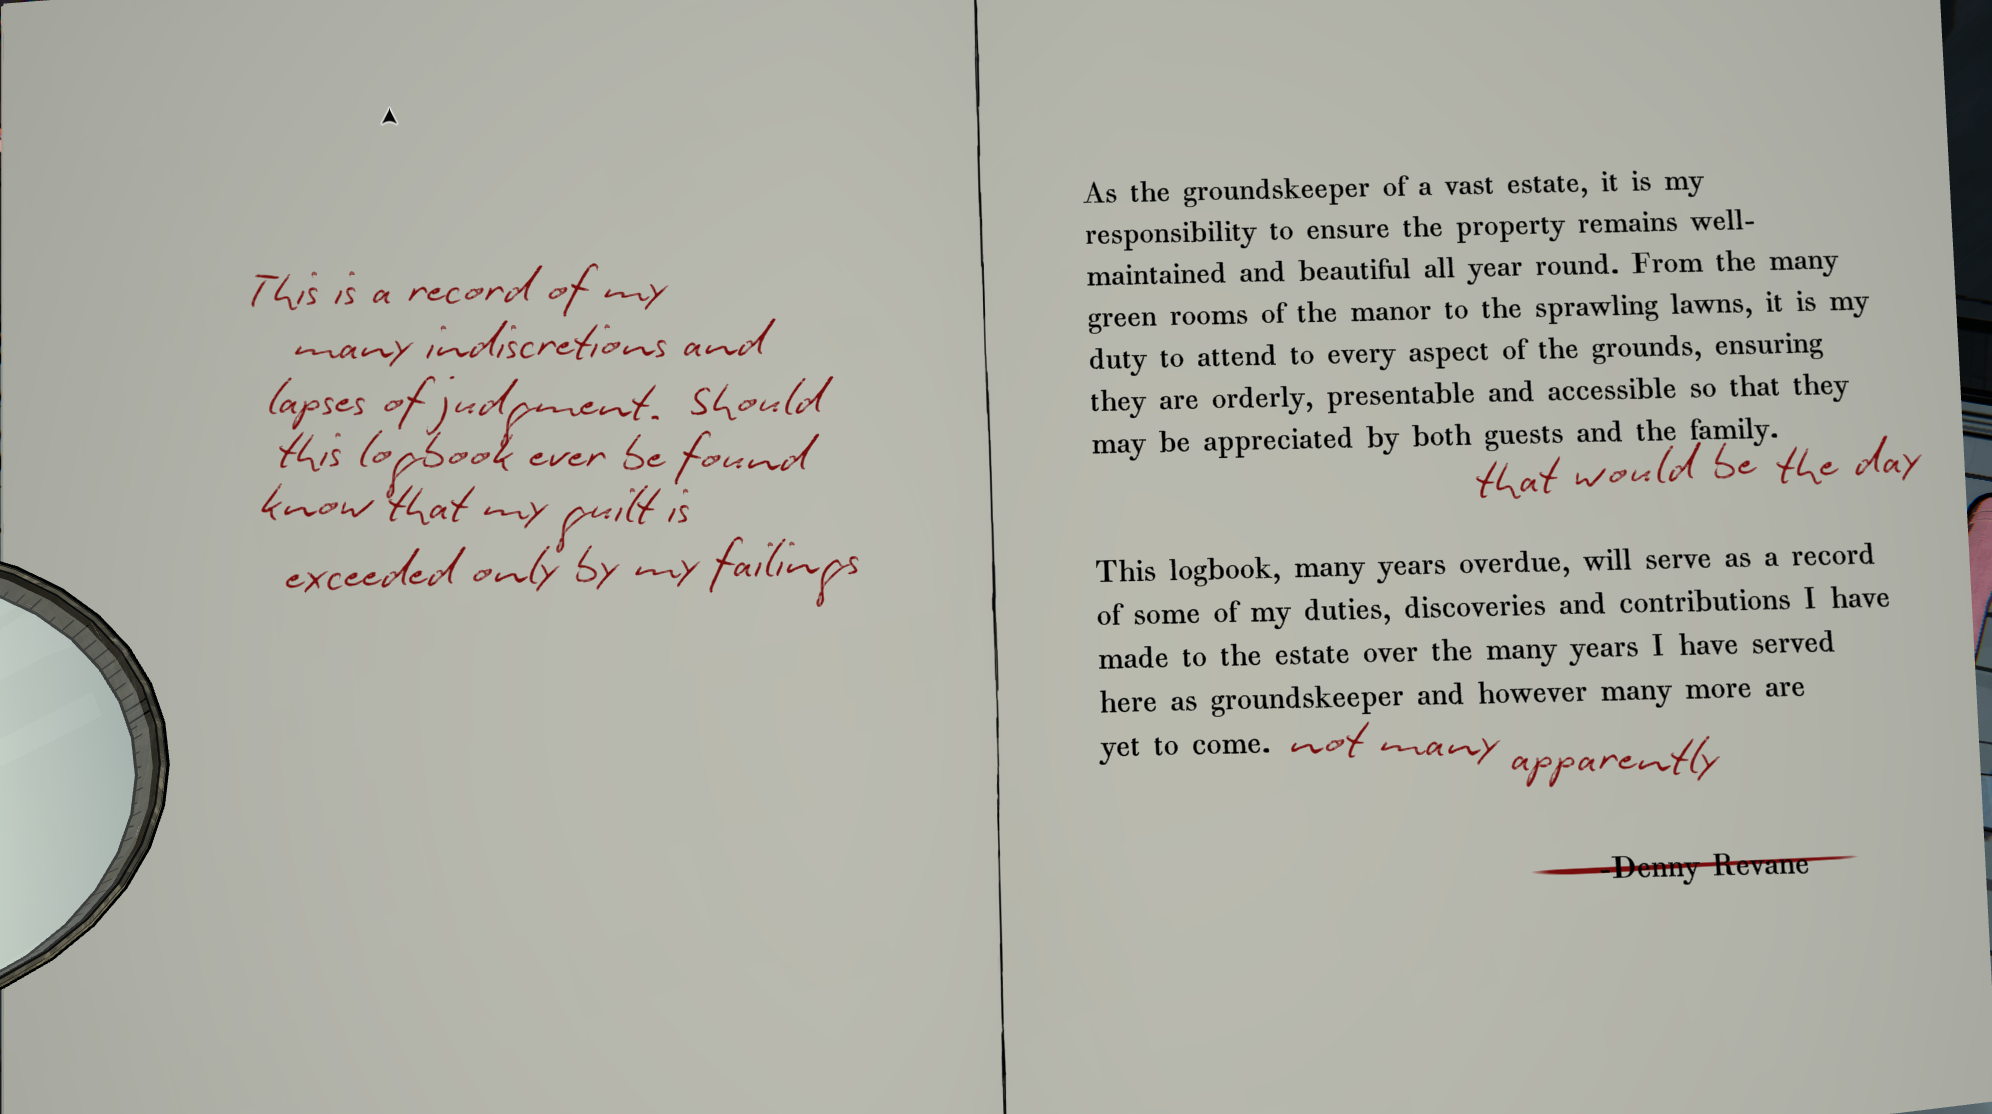 This is a record of my
many indiscretions and
lapses of judgment. Should
this logbook ever be found
know that my guilt is
exceeded only by my failings
As the groundskeeper of a vast estate, it is my
responsibility to ensure the property remains well-
maintained and beautiful all year round. From the many
green rooms of the manor to the sprawling lawns, it is my
duty to attend to every aspect of the grounds, ensuring
they are orderly, presentable and accessible so that they
may be appreciated by both guests and the family.
that would be the day
This logbook, many years overdue, will serve as a record
of some of my duties, discoveries and contributions I have
made to the estate over the many years I have served
here as groundskeeper and however many more are
yet to come. not many apparently
-Denny Revane